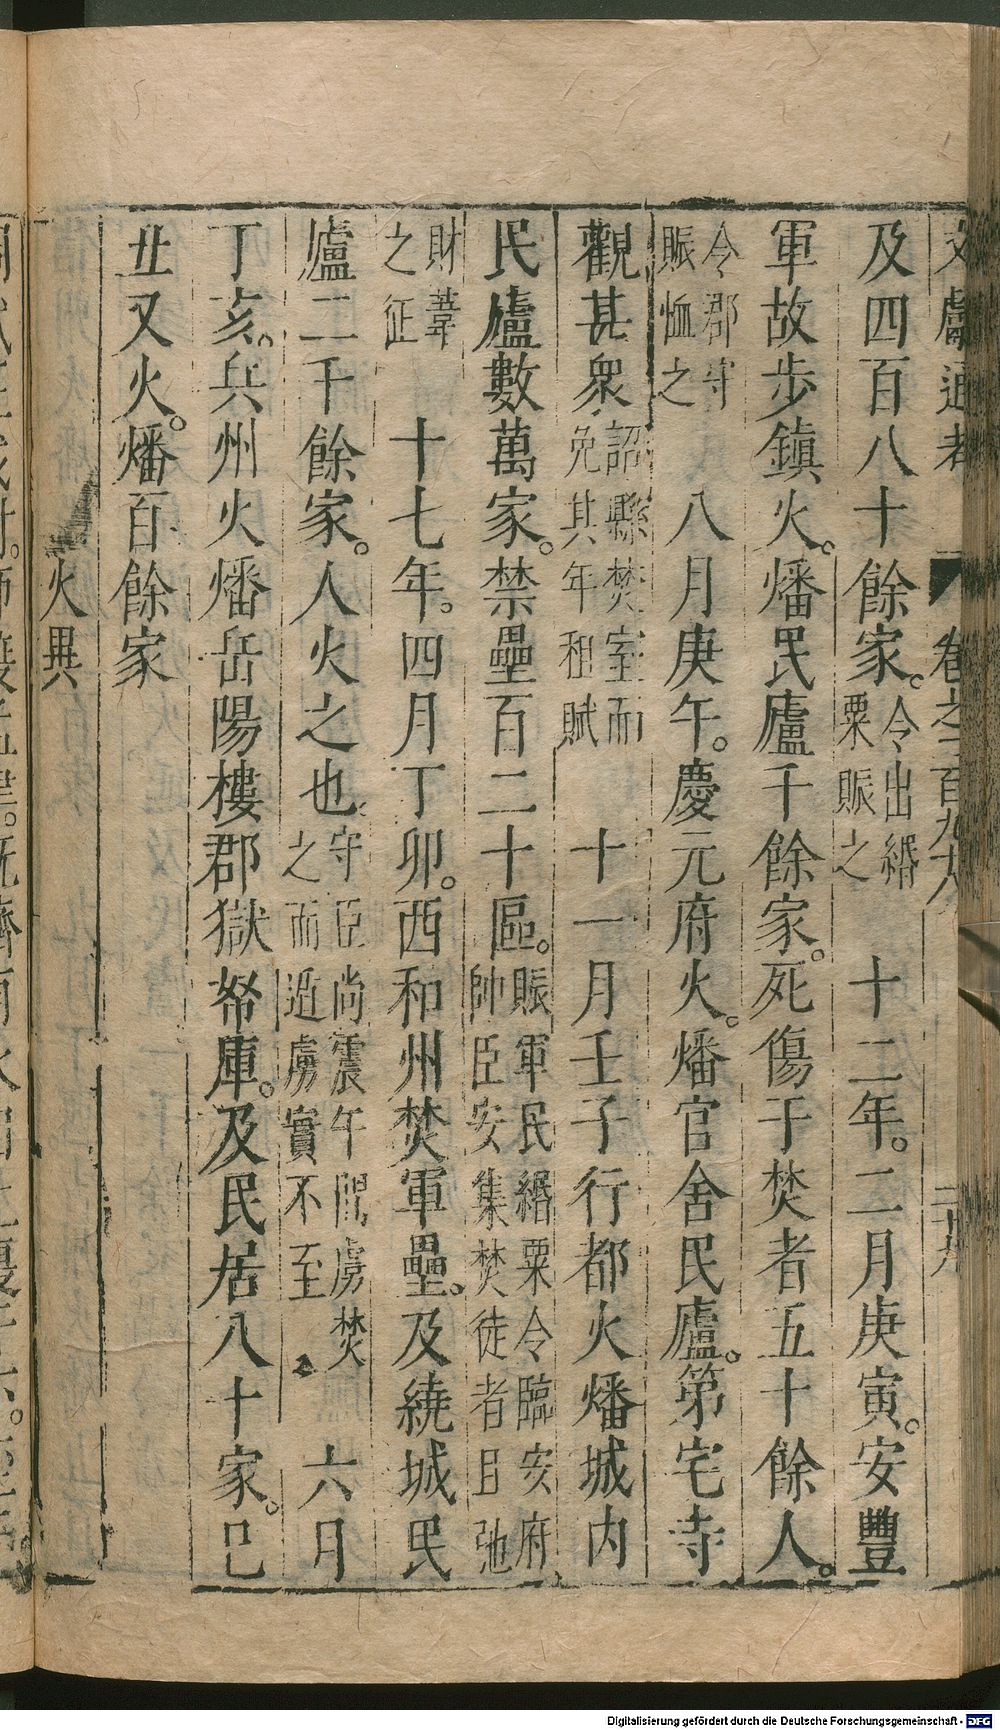 文獻通考 卷之二百九十八 二十九
及四百八十餘家。令出緡粟賑之 十二年。二月庚寅。安豐
軍故步鎮火。燔民廬千餘家。死傷于焚者五十餘人。
令郡守賑恤之 八月庚午。慶元府火。燔官舍民廬。第宅寺
觀甚衆 詔縣焚室而免其年租賦 十一月壬子行都火燔城內
民廬數萬家。禁壘百二十區。賑軍民緡粟令臨安府帥臣安集焚徒者且弛
財葦之征 十七年。四月丁卯。西和州焚軍壘。及繞城民
廬二千餘家。人火之也 守臣尚震午間虜焚之而逅虜實不至 六月
丁亥。兵州火燔岳陽樓郡獄帑庫。及民居八十家。己
丑又火。燔百餘家
火異
Digitalisierung gefördert durch die Deutsche Forschungsgemeinschaft - DFG